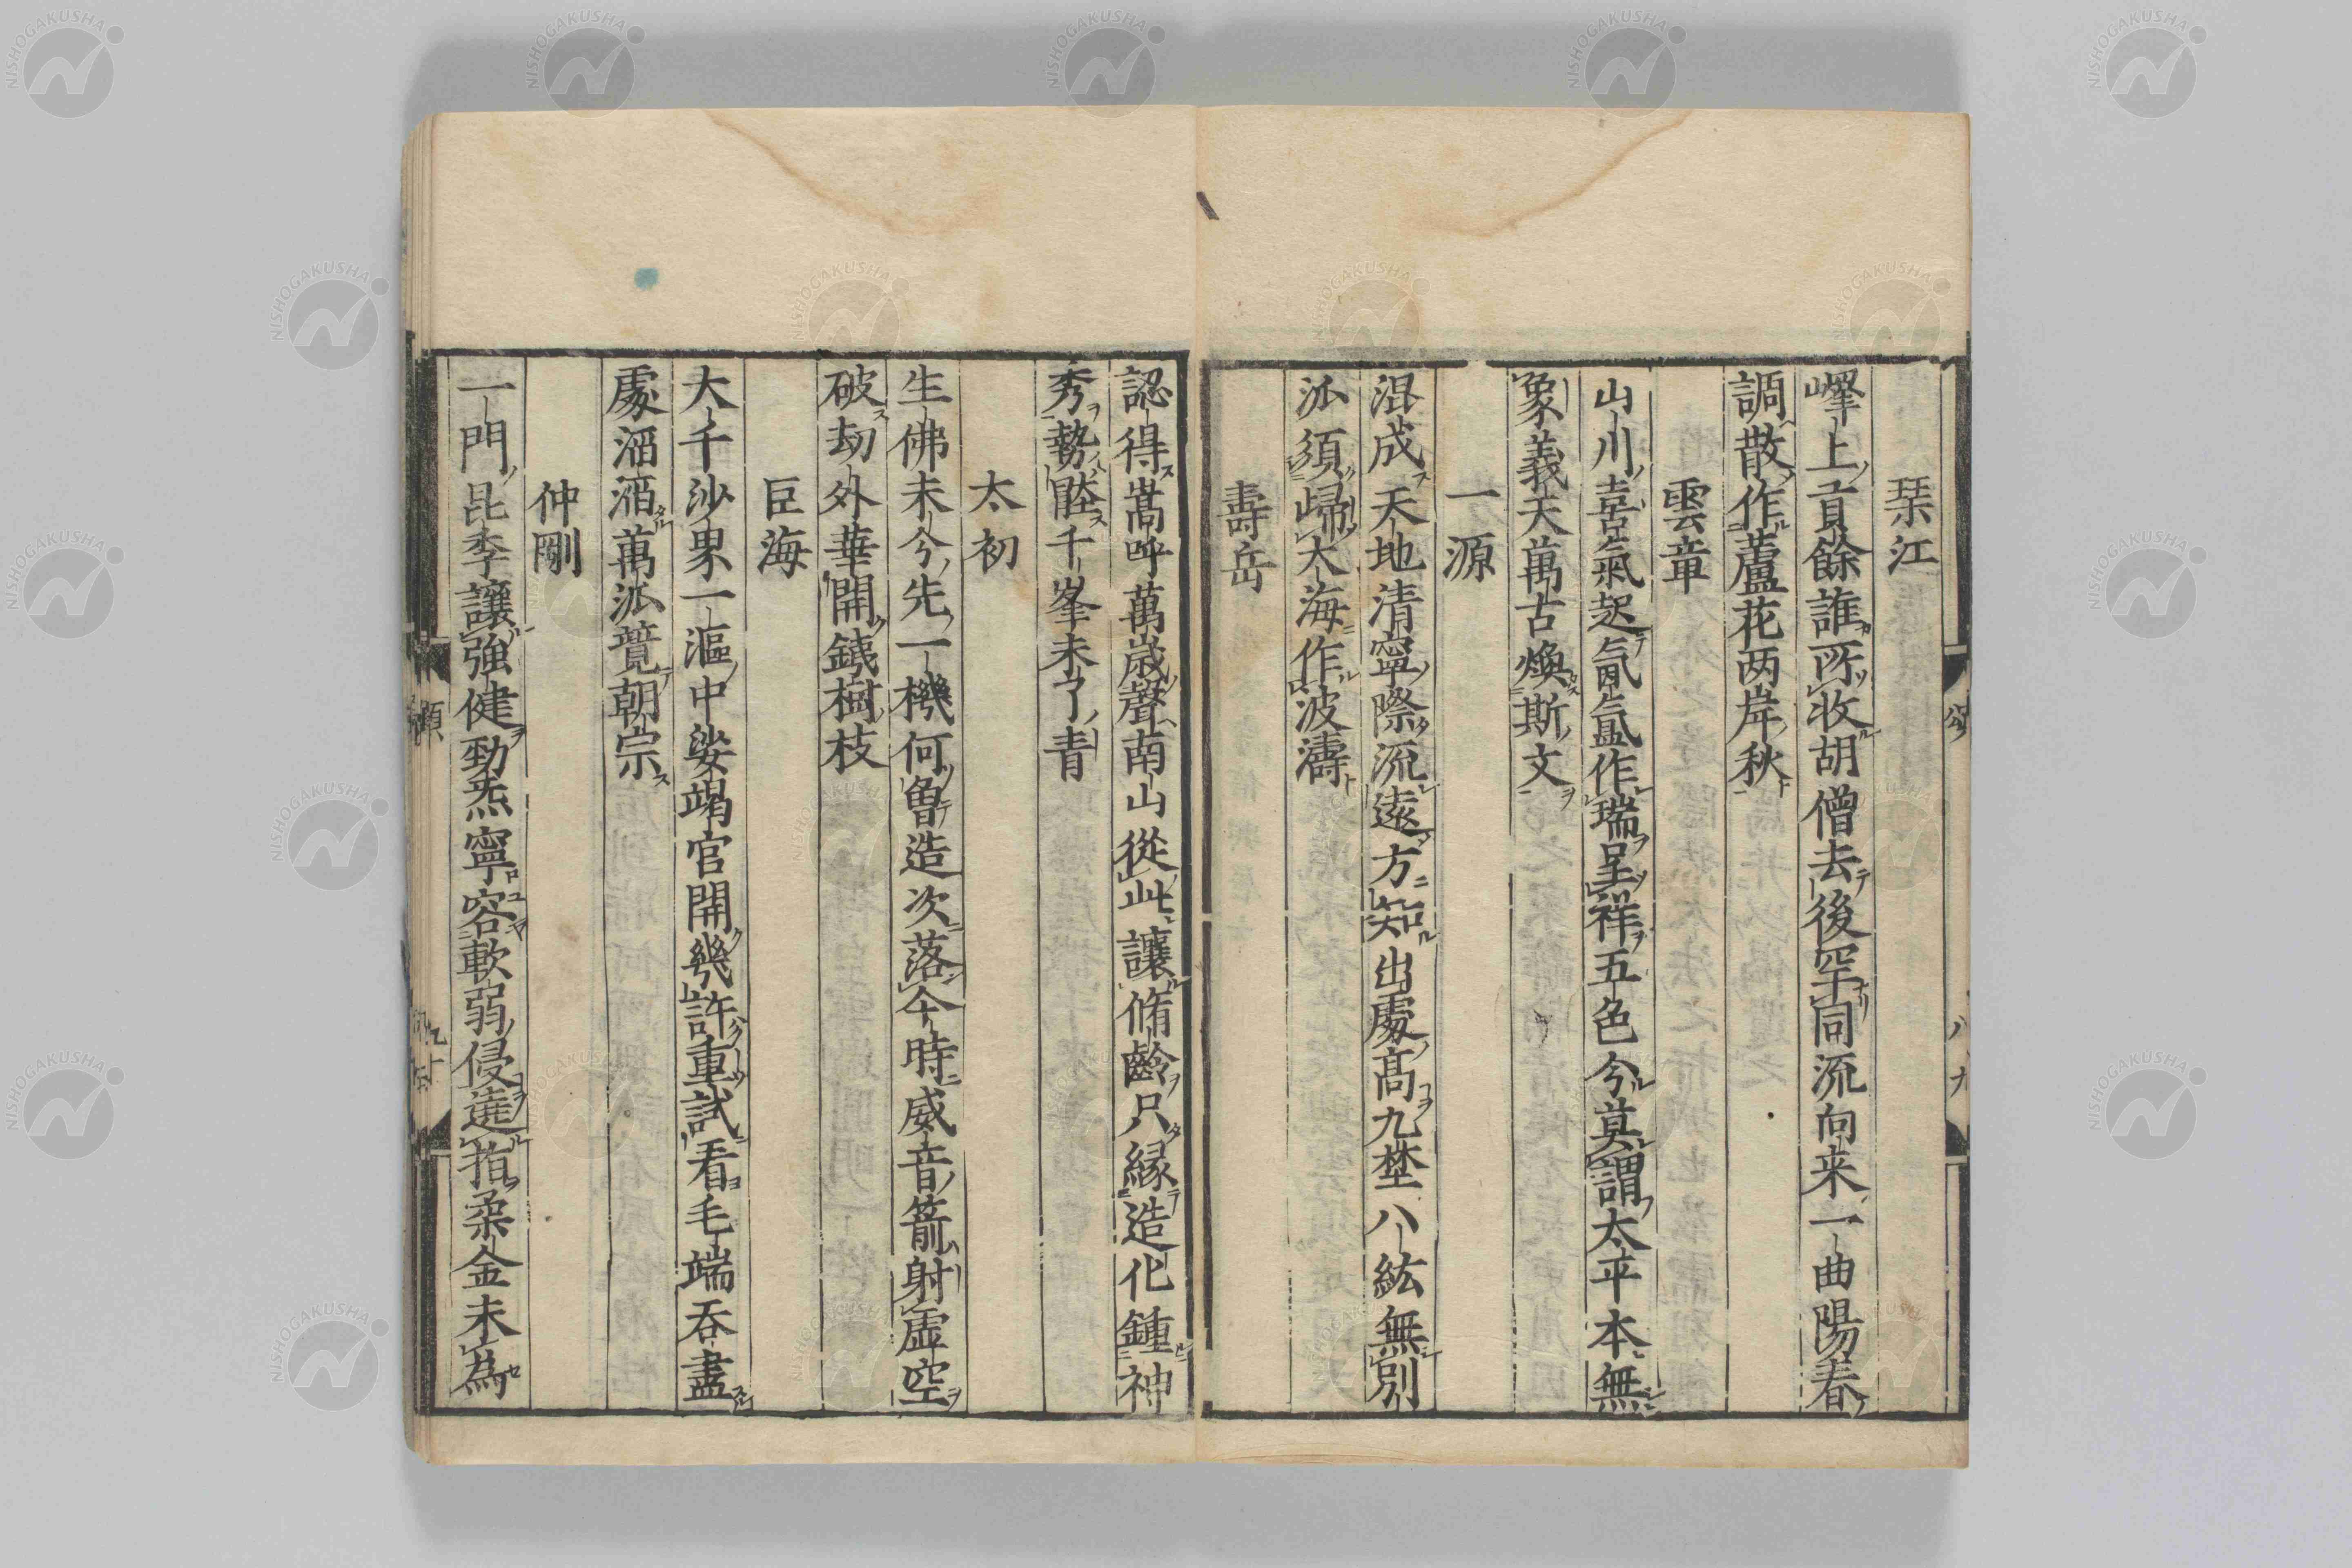 琹江
嶧上貢餘誰所收胡僧去後罕同流向来一曲陽春
調散作蘆花两岸秋
雲章
山川喜氣起氤氳作瑞呈祥五色分莫謂太平本無
象義天萬古煥斯文
一源
混成天地清寧際流遠方知出處髙九埜八紘無別
派須歸大海作波濤
壽岳
認得嵩呼萬歳聲南山從此讓脩齡只縁造化鍾神
秀勢壓千峯未了青
太初
生佛未分先一機何曽造次落今時威音箭射虚空
破劫外華開鐡樹枝
巨海
大千沙界一漚中娑竭官開幾許重試看毛端吞盡
處滔滔萬派覓朝宗
仲剛
一門昆季讓強健勁氣寧容軟弱侵遶指柔金未為
頌
NISHOGAKUSHA